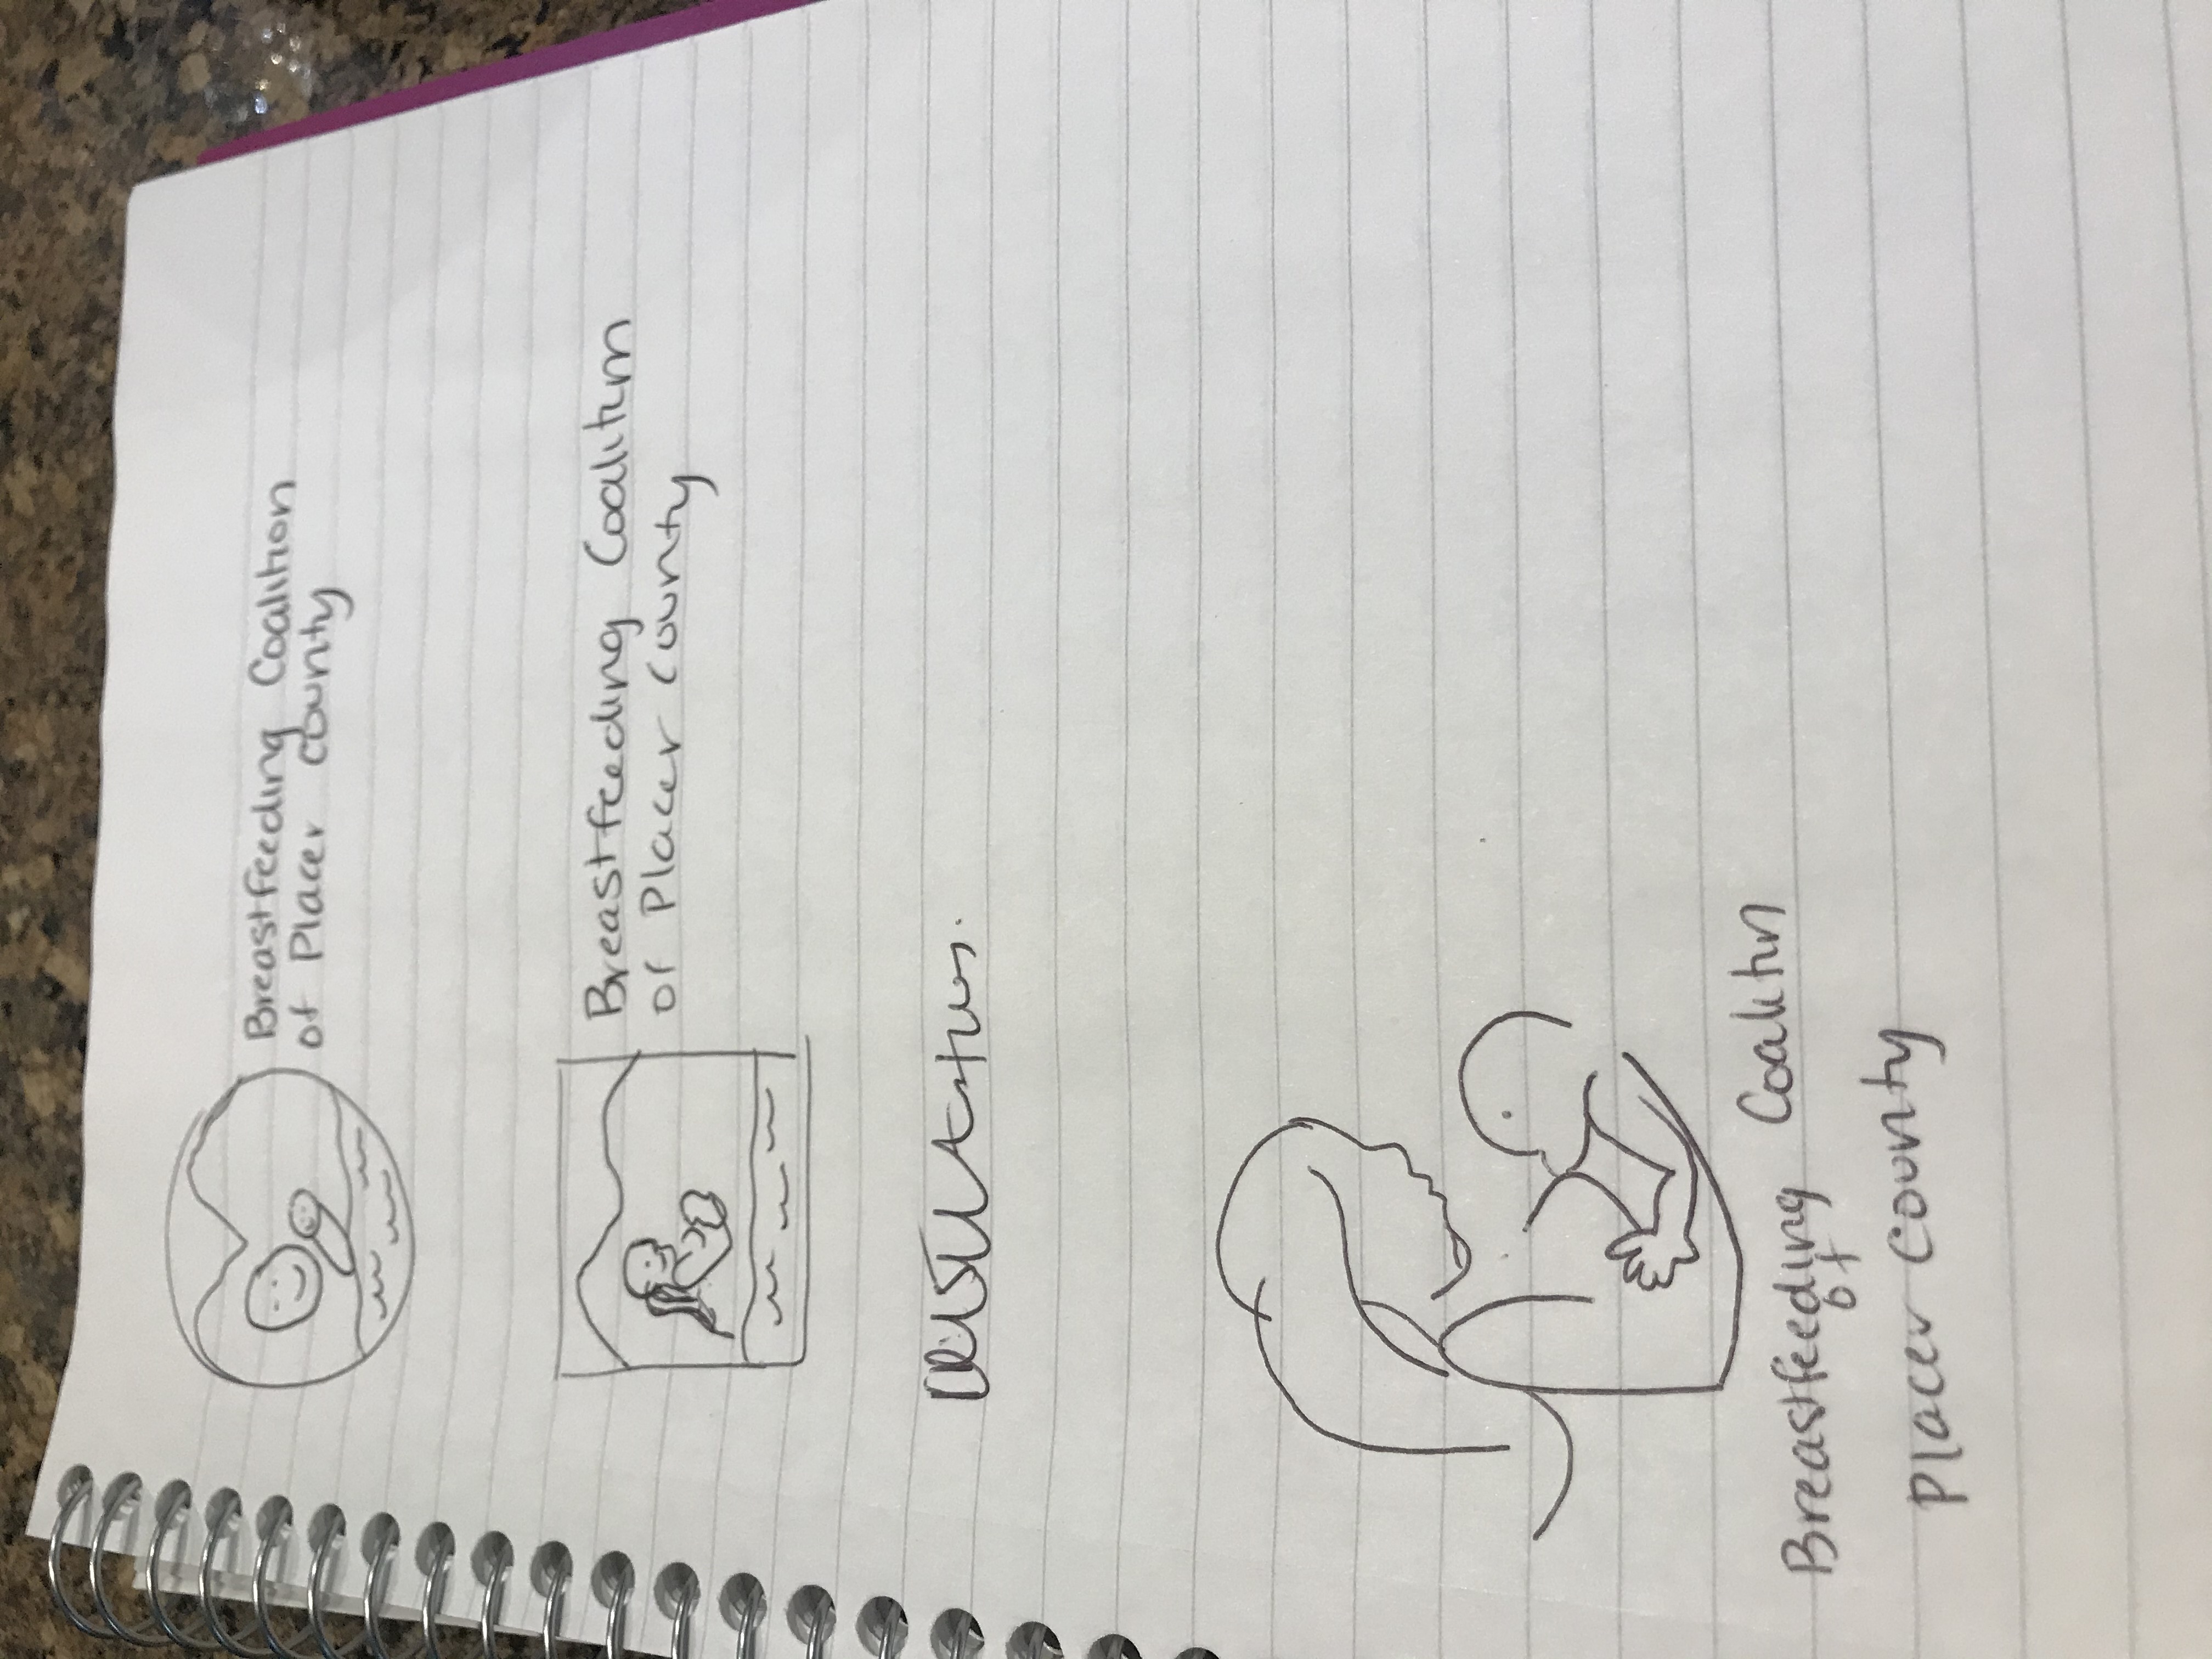 Breastfeeding Coalition
of Placer County
Breastfeeding Coalition
of Placer County
Breastfeeding Coalition
of
Placer County